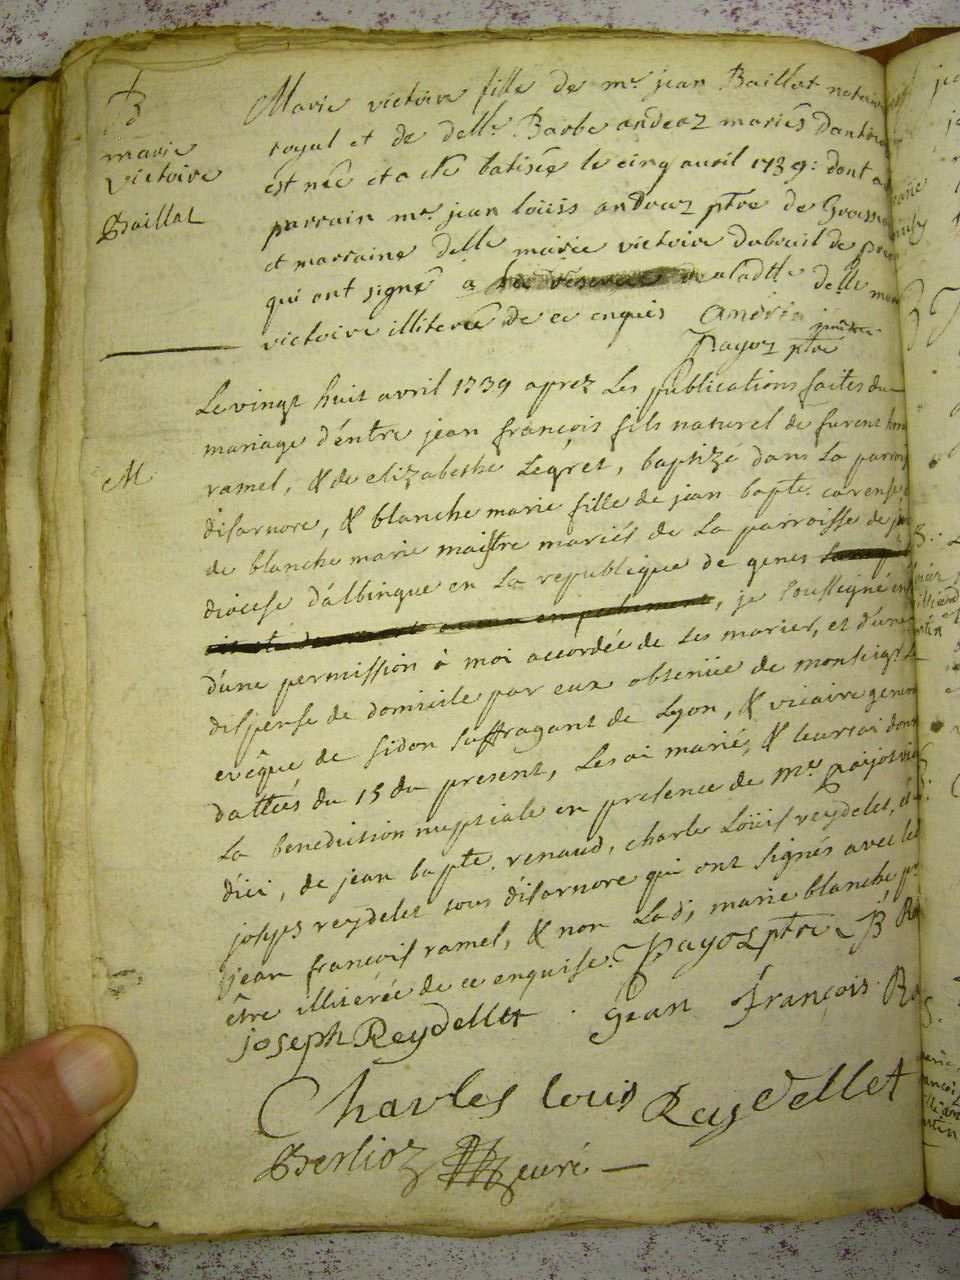 B
marie
victoire
Baillat
Marie victoire fille de mr. jean Baillat notaire
royal et de delle. Barbe andraz mariés
est née et a eté batisée le cinq auril 1739: dont a
parrain mr. jean loüis andraz ptre de
et marraine delle marie victoire dubreuil de
qui ont signé a la reserve de laditte delle
victoire illiterée de ce enquis
Payoz ptre
M
Le vingt huit avril 1739 aprez Les publications faites du
mariage d'entre jean françois fils naturel de
ramel, & de elizabethe Legret, baptizé dans La
disarnore, & blanche marie fille de jean bapte.
de blanche marie maistre mariés de La parroisse de
diocese d'albingue en La republique de genes
, je soussigné
d'une permission à moi accordée de Les marier, et d'une
dispense de domicile par eux obtenüe de monseigr
evêque de sidon suffragant de Lyon, & vicaire
dattées du 15 du present, Les ai mariés, & leur ai
La benediction nuptiale en presence de mre
d'ici, de jean bapte. renaud, charle Loüis reydelet,
joseph reydelet tous disarnore qui ont signés avec led
jean françois ramel, & non Lad; marie blanche,
être illiterée de ce enquise. Payoz ptre B
joseph Reydellet jean françois
Charles louis Reydellet
Berlioz curé